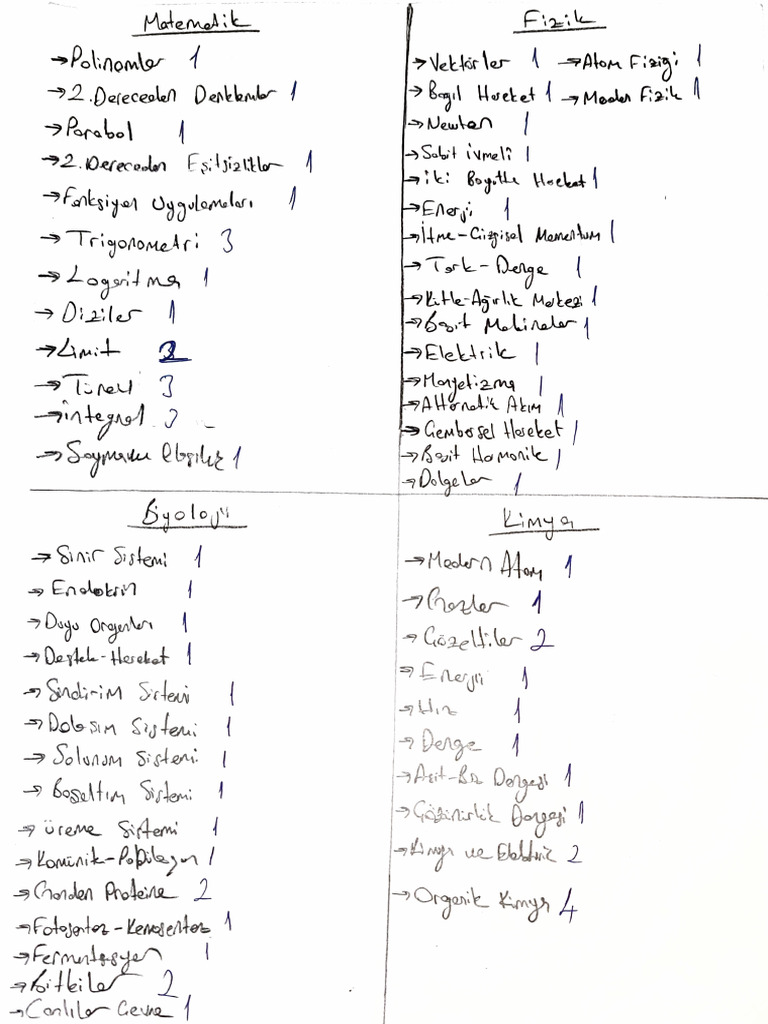 Matematik
→Polinomlar 1
→2.Dereceden Denklemler 1
→Parabol 1
→2.Dereceden Eşitsizlikler 1
→Fonksiyon Uygulamaları 1
→Trigonometri 3
→Logaritma 1
→Diziler 1
→Limit 2
→Türev 3
→integral 3
→Saymanın 1
Fizik
→Vektörler 1 →Atom Fiziği 1
→Bağıl Hareket 1 →Modern Fizik 1
→Newton 1
→Sabit ivmeli 1
→iki Boyutta Hareket 1
→Enerji 1
→İtme-Çizgisel Momentum 1
→Tork-Denge 1
→Kütle-Ağırlık Merkezi 1
→Basit Makineler 1
→Elektrik 1
→Manyetizma 1
→Alternatik Akım 1
→Çembersel Hareket 1
→Basit Harmonik 1
→Dalgalar 1
Biyoloji
→Sinir Sistemi 1
→Endokrin 1
→Duyu Organları 1
→Destek-Hareket 1
→Sindirim Sistemi 1
→Dolaşım Sistemi 1
→Solunum Sistemi 1
→Boşaltım Sistemi 1
→üreme Sistemi 1
→Komünite-Popülasyon 1
→Genden Proteine 2
→Fotosentez-Kemosentez 1
→Fermentasyon 1
→Bitkiler 2
→Canlılar Çevre 1
Kimya
→Modern Atom 1
→Gazlar 1
→Çözeltiler 2
→Enerji 1
→Hız 1
→Denge 1
→Asit-Baz Dengesi 1
→Çözünürlük Dengesi 1
→Kimya ve Elektrik 2
→Organik Kimya 4